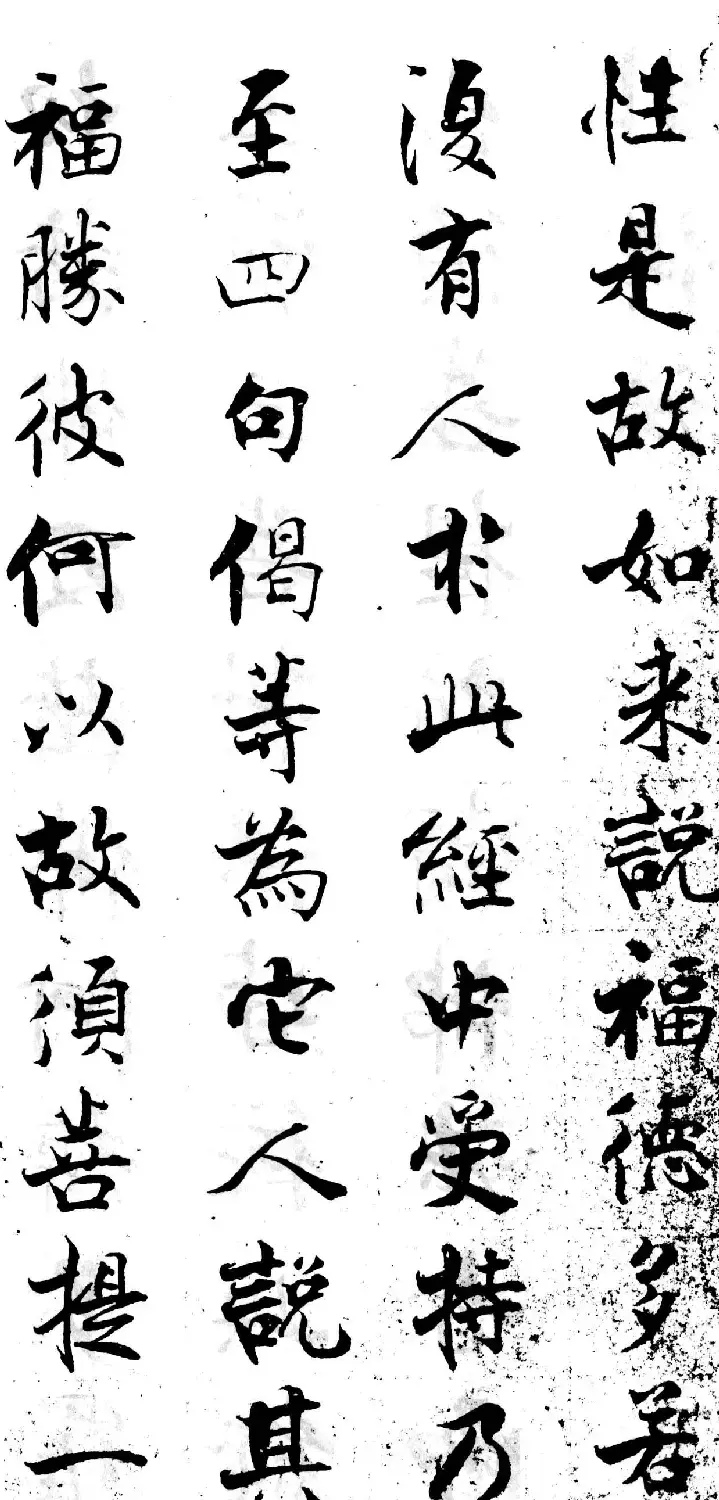 性是故如来說福德多若
復有人於此經中受持乃
至四句偈等為它人說其
福勝彼何以故須菩提一